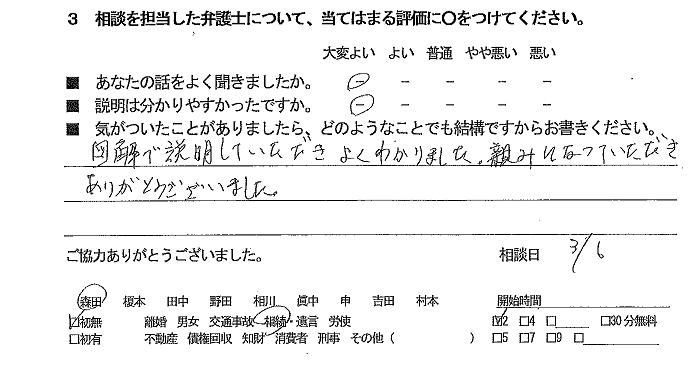 3 相談を担当した弁護士について、当てはまる評価に〇をつけてください。
大変よい よい 普通 やや悪い 悪い
■ あなたの話をよく聞きましたか。 － － － － －
■ 説明は分かりやすかったですか。 － － － － －
■ 気がついたことがありましたら、どのようなことでも結構ですからお書きください。
図解で説明していただき よくわかりました。親みになっていただき
ありがとうございました。
ご協力ありがとうございました。 相談日 3/6
森田 榎本 田中 野田 相川 眞中 申 吉田 村本 開始時間
☑初無 離婚 男女 交通事故 相続・遺言 労使 ☑2 □4 □ □30分無料
□初有 不動産 債権回収 知財 消費者 刑事 その他（ ） □5 □7 □9 □